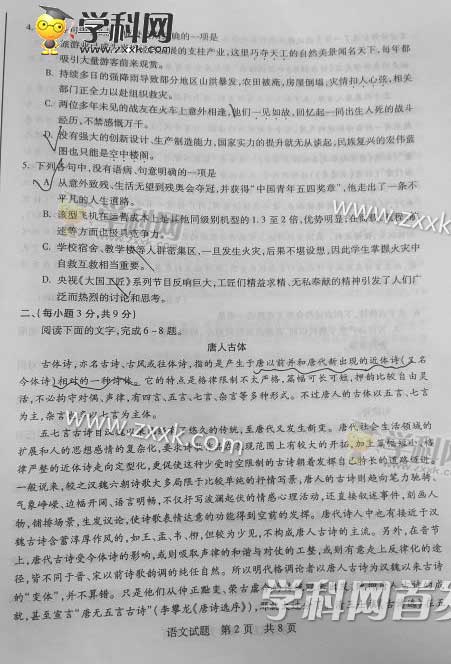 学科网
4.
确的一项是
旅游业
展的支柱产业，这里巧夺天工的自然美景闻名天下，每年都
吸引大量游客前来观赏。
B. 持续多日的强降雨导致部分地区山洪暴发，农田被淹，房屋倒塌，灾情扣人心弦，相关
部门正全力以赴组织救灾。
C. 两位多年未见的战友在火车上意外相逢，他们一见如故，回忆起一同出生入死的战斗
经历，不禁感慨万千。
D. 没有强大的创新设计、生产制造能力，国家实力的提升就无从谈起，民族复兴的宏伟蓝
图也只能是空中楼阁。
5. 下列各句中，没有语病、句意明确的一项是
从意外致残、生活无望到残奥会夺冠，并获得“中国青年五四奖章”，他走出了一条不
平凡的人生道路。
B. 该型飞机在运营成本上是其他同级别机型的1.3至2倍，优势明显，
速等方面也极具竞争力。
C. 学校宿舍、教学楼等人群密集区，一旦发生火灾，后果不堪设想，因此学生掌握火灾中
自救互救相当重要。
D. 央视《大国工匠》系列节目反响巨大，工匠们精益求精、无私奉献的精神引发了人们广
泛而热烈的讨论和思考。
二、（每小题3分，共9分）
阅读下面的文字，完成6～8题。
唐人古体
古体诗，亦名古诗、古风或往体诗，指的是产生于唐以前并和唐代新出现的近体诗（又名
今体诗）相对的一种诗体。它的特点是格律限制不太严格，篇幅可长可短，押韵比较自由灵
活，不必拘守对偶、声律，有四言、五言、七言、杂言等多种形式。不过唐人的古体以五言、七言
为主，杂言
以七言为主。
五七言古诗自汉魏以来
了悠久的传统，至唐代又发生新变。唐代社会生活领域的
扩展和人的思想感情的复杂化，要求诗
现范围上有较大的开拓，加上篇幅短小、格
律严整的近体诗走向定型化，更促使这种少受时空限制的古诗朝着发挥自己特长的道路迈进。
一般说来，较之汉魏六朝诗歌大多局限于比较单纯的抒情写景，唐人的古诗则趋向笔力驰骋、
气象峥嵘、边幅开阔、语言明畅，不仅抒写波澜起伏的情感心理活动，还直接叙述事件，刻画人
物，铺排场景，生发议论，使诗歌表情达意的功能得到空前的发挥。唐代诗人中也有接近于汉
魏古诗含蓄淳厚作风的，如王、孟、韦、柳，但较为少见，不构成唐人古诗的主流。另外，在音节
上，唐代古诗受今体诗的影响，或则吸取声律的和谐与对仗的工整，或则有意走上反律化的途
径，皆不同于晋、宋以前诗歌韵调的纯任自然。所以明代格调论者以唐人古诗为汉魏以来古诗
的“变体”，并不算错。只是他们从伸正黜变、荣古虐今
就，甚至宣言“唐无五言古诗”（李攀龙《唐诗选序》），那
语文试题 第2页 共8页
www.zxxk.com
学科网首发